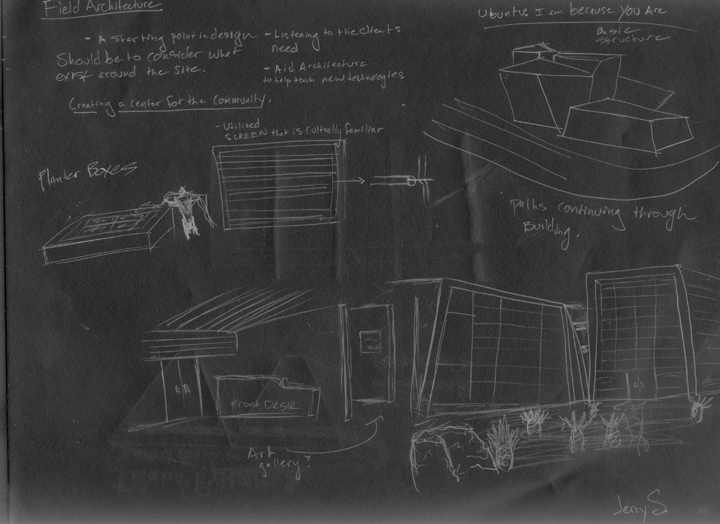 Field Architecture
- A starting point in design
Should be to consider what
exist around the site.
- Listening to the client's
need
- Aid Architecture
to help teach new technologies
Creating a center for the community.
Ubuntu: I am because you Are
Basic
Structure
- Utilized
SCREEN that is cultrally familiar
Planter Boxes
Paths continuing through
Building.
Front Desk
Art
gallery?
Jerry S.